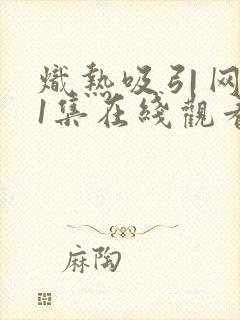 熾熱吸引网
1集在綫觀看
麻陶